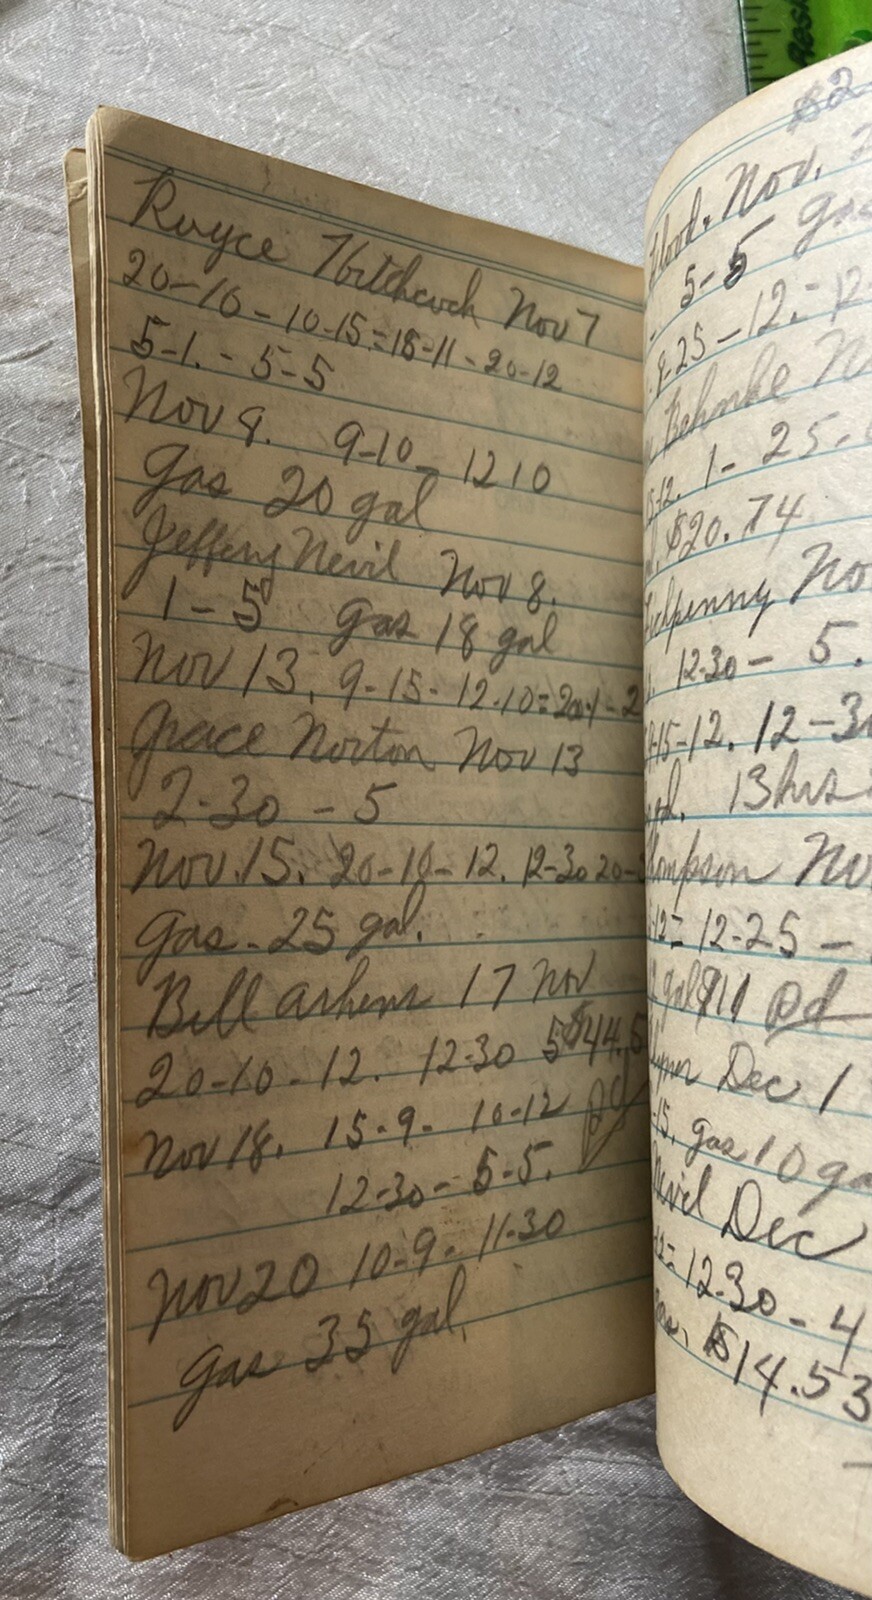 Royce Hitchcock Nov 7
20-10-10-15=15-11-20-12
5-1.-5-5
Nov 8. 9-10-12 10
Gas 20 gal
Jeffery Nevil Nov 8.
1-5 Gas 18 gal
Nov 13. 9-15-12.10=20-1-2
Grace Norton Nov 13
2-30-5
Nov. 15. 20-10-12. 12-30 20-
Gas-25 gal.
Bill 17 Nov
20-10-12. 12-30 5 $44.5
Nov 18. 15-9-10-12 pd
12-30-5-5.
Nov 20 10-9-11-30
Gas 35 gal.
$2
Nov. 2
5-5 Ga
25-12.=12
Behnke N
12. 1-25-
$20.74
No
12-30-5.
15-12. 12-30
13 hrs
No
12=12-25-
gal $11 pd
Dec 1
15. gas 10 ga
Dec
12.30-4
$14.53